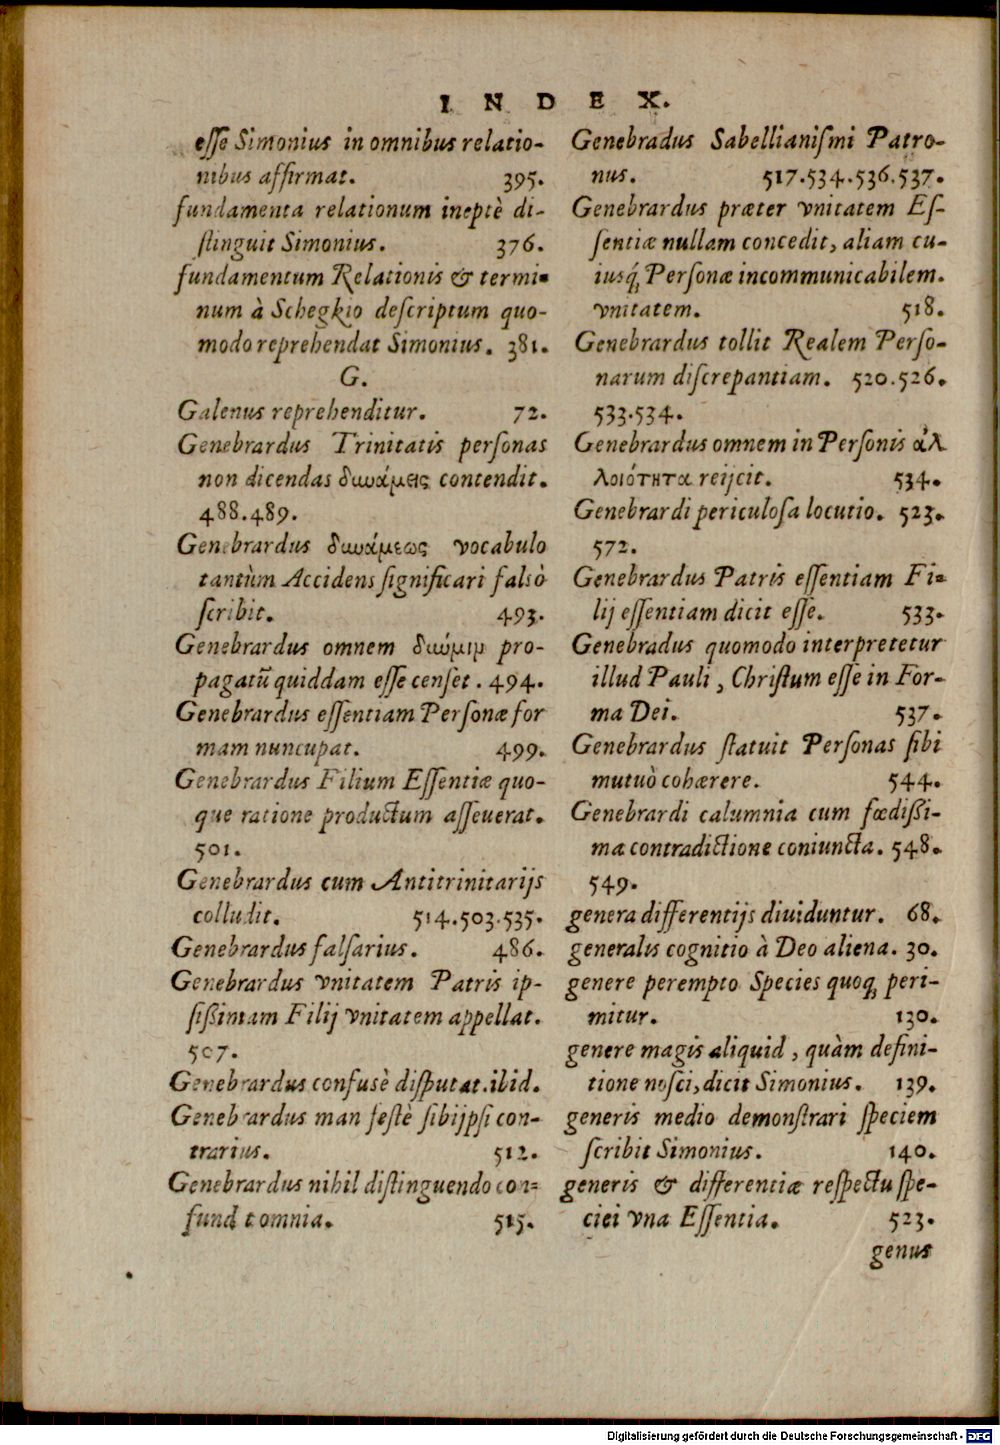 INDEX.
esse Simonius in omnibus relatio-
nibus affirmat. 395.
fundamenta relationum ineptè di-
stinguit Simonius. 376.
fundamentum Relationis & termi-
num à Schegkio descriptum quo-
modo reprehendat Simonius. 381.
G.
Galenus reprehenditur. 72.
Genebrardus Trinitatis personas
non dicendas δυνάμεις contendit.
488.489.
Genebrardus δυνάμεως vocabulo
tantùm Accidens significari falsò
scribit. 493.
Genebrardus omnem δύναμιν pro-
pagatũ quiddam esse censet. 494.
Genebrardus essentiam Personæ for
mam nuncupat. 499.
Genebrardus Filium Essentiæ quo-
que ratione productum asseuerat.
501.
Genebrardus cum Antitrinitarijs
colludit. 514.503.535.
Genebrardus falsarius. 486.
Genebrardus vnitatem Patris ip-
sißimam Filij vnitatem appellat.
507.
Genebrardus confusè disputat. ibid.
Genebrardus manifestè sibijpsi con-
trarius. 512.
Genebrardus nihil distinguendo con-
fundit omnia. 515.
Genebradus Sabellianismi Patro-
nus. 517.534.536.537.
Genebrardus præter vnitatem Es-
sentiæ nullam concedit, aliam cu-
iusq́; Personæ incommunicabilem.
vnitatem. 518.
Genebrardus tollit Realem Perso-
narum discrepantiam. 520.526.
533.534.
Genebrardus omnem in Personis ἀλ
λοιότητα reijcit. 534.
Genebrardi periculosa locutio. 523.
572.
Genebrardus Patris essentiam Fi-
lij essentiam dicit esse. 533.
Genebradus quomodo interpretetur
illud Pauli, Christum esse in For-
ma Dei. 537.
Genebrardus statuit Personas sibi
mutuò cohærere. 544.
Genebrardi calumnia cum fœdißi-
ma contradictione coniuncta. 548.
549.
genera differentijs diuiduntur. 68.
generalis cognitio à Deo aliena. 30.
genere perempto Species quoq; peri-
mitur. 130.
genere magis aliquid, quàm defini-
tione nosci, dicit Simonius. 139.
generis medio demonstrari speciem
scribit Simonius. 140.
generis & differentiæ respectu spe-
ciei vna Essentia. 523.
genus
Digitalisierung gefördert durch die Deutsche Forschungsgemeinschaft - DFG